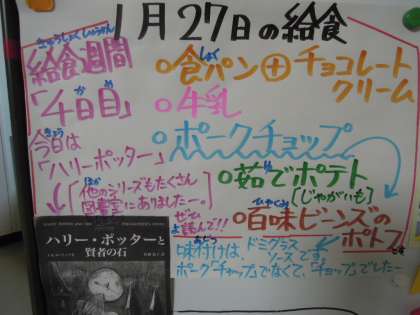 1月27日の給食
きゅうしょくしゅうかん
給食週間
「4日目」
きょう
今日は
「ハリーポッター」
ほか
他のシリーズもたくさん
図書室にありましたー。
ぜひ
読んで!!
しょく
○食パン⊕チョコレート
クリーム
○牛乳
○ポークチョップ
○茹でポテト
[じゃがいも]
ひゃくみ
○百味ビーンズの
ポトフ
あじつ
味付けは、ドミグラス
ソースです。
ポーク「チャップ」でなくて、「チョップ」でしたー
ハリー・ポッターと
賢者の石